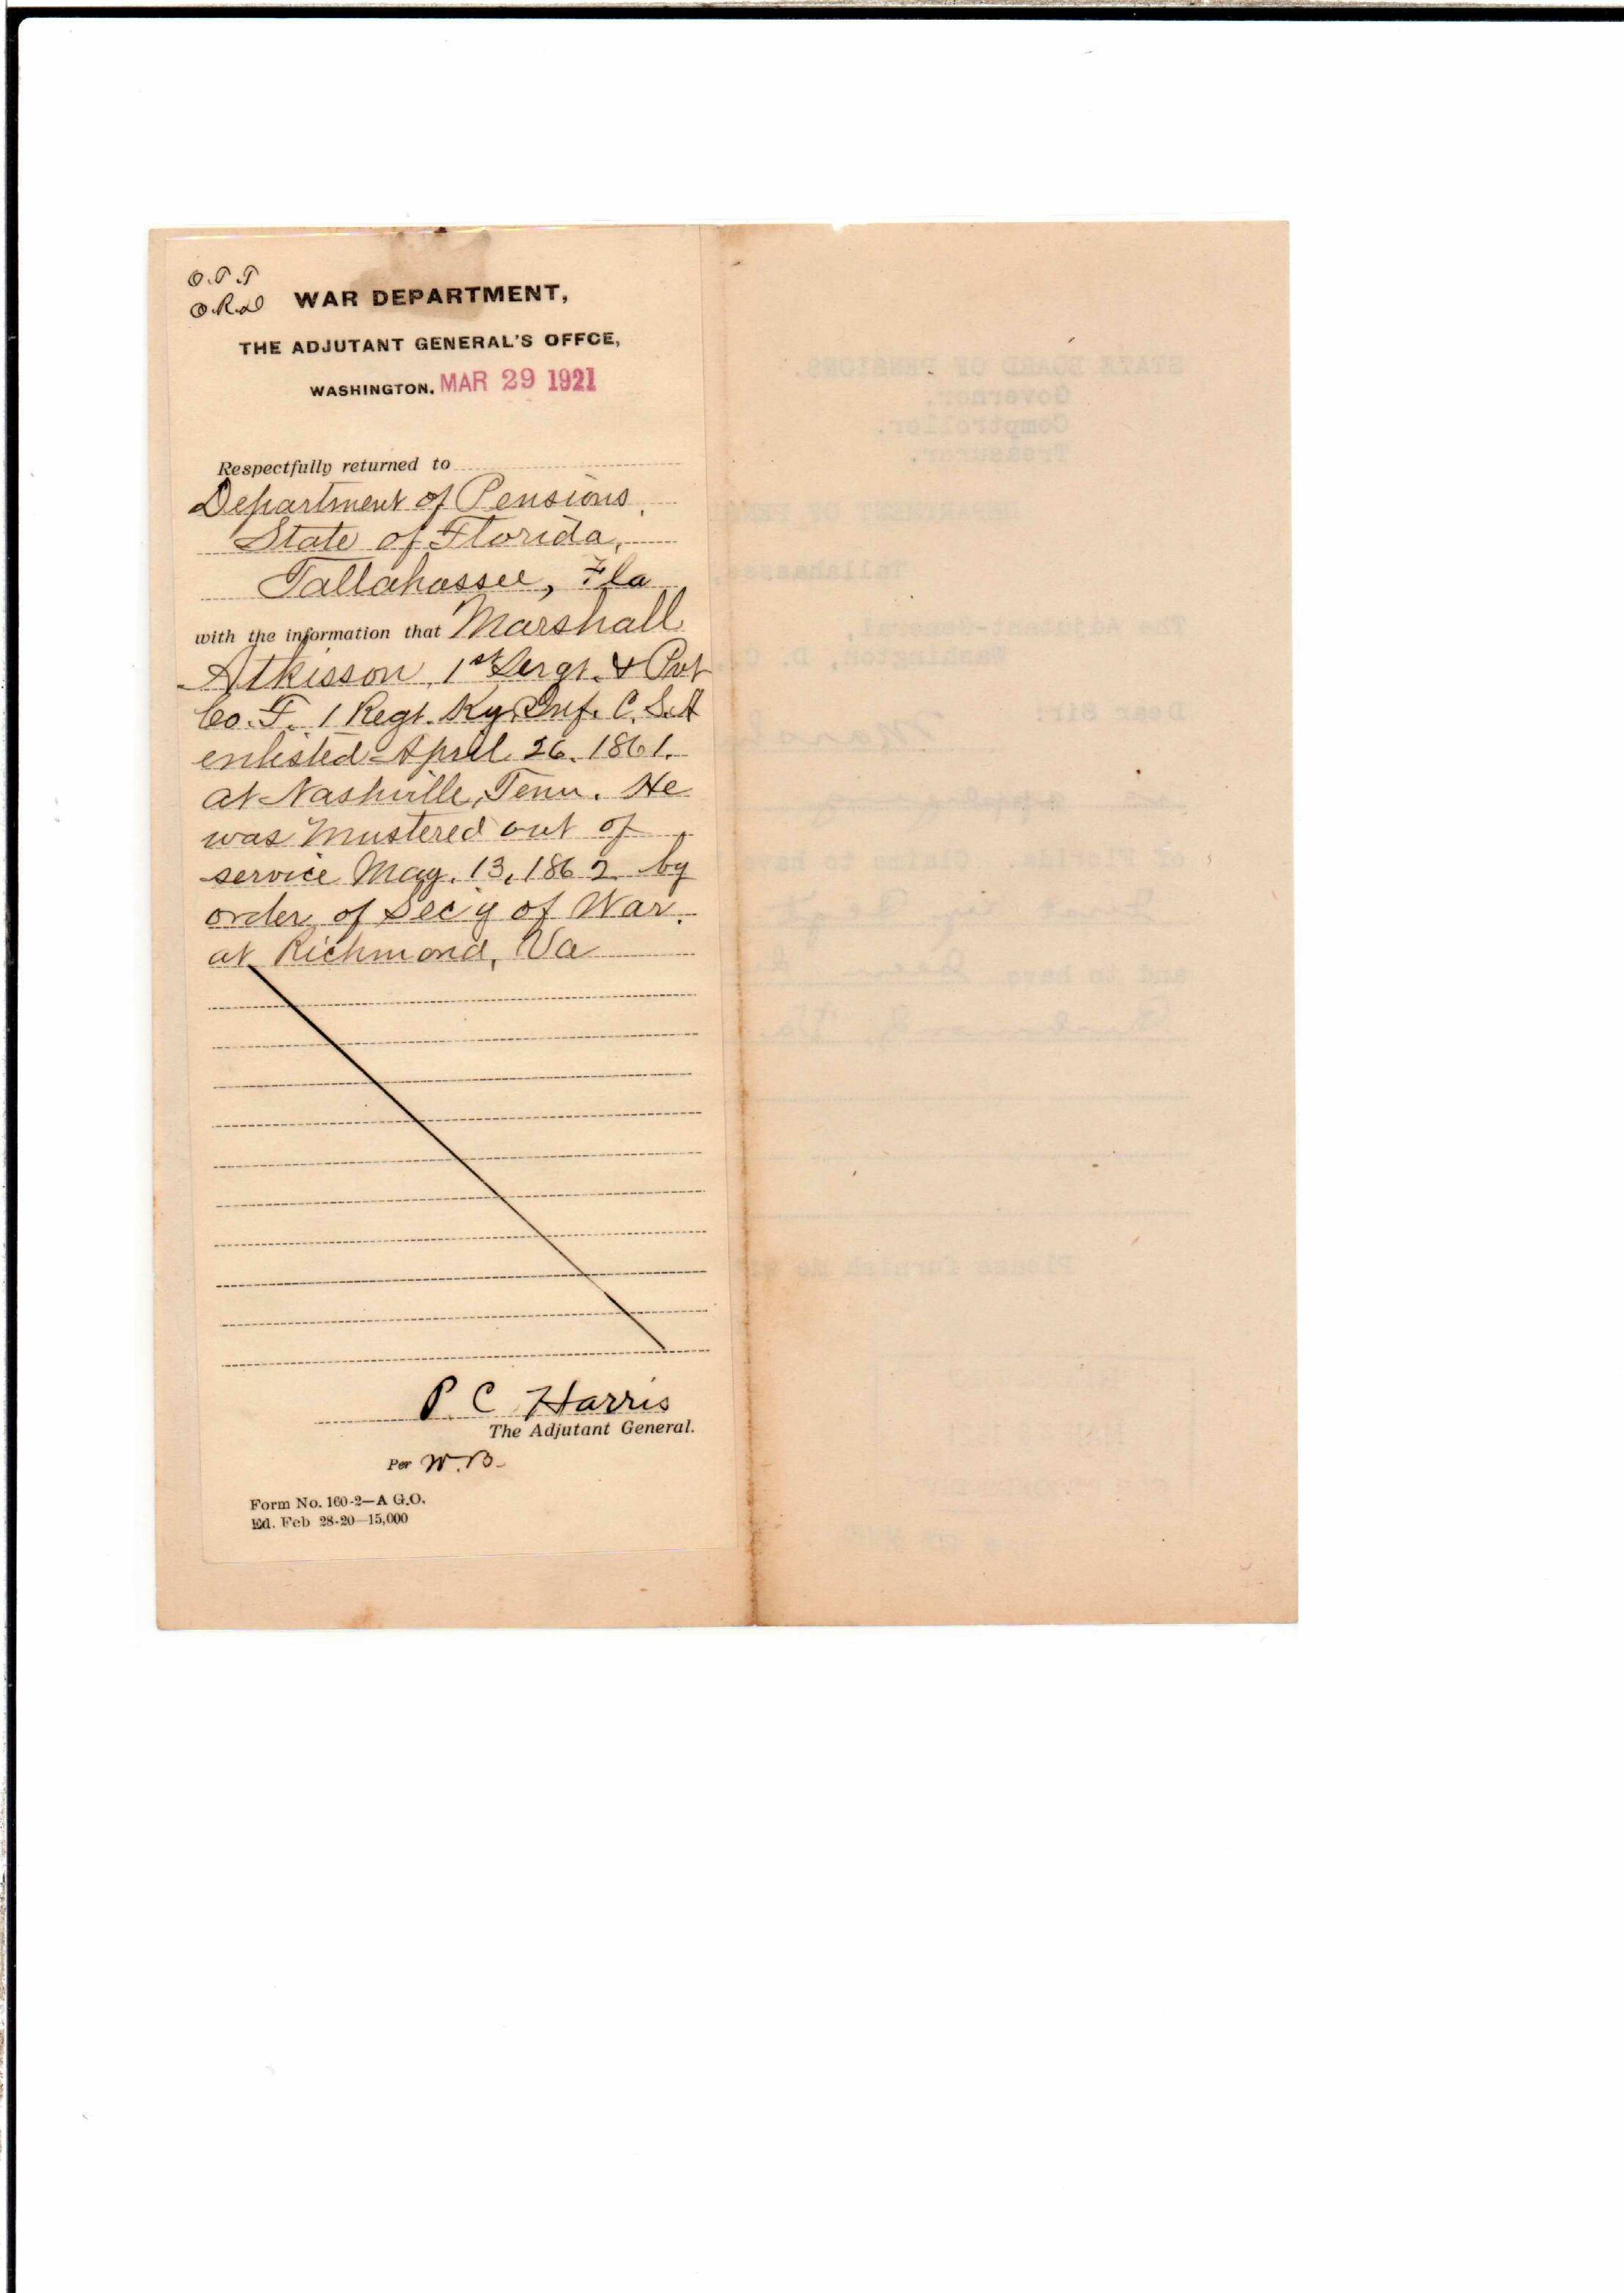 O.T.T
O.R.D
WAR DEPARTMENT,
THE ADJUTANT GENERAL'S OFFCE,
WASHINGTON. MAR 29 1921
Respectfully returned to
Department of Pensions,
State of Florida,
Tallahassee, Fla
with the information that Marshall
Atkisson, 1st Sergt. & Pvt
Co. F. 1 Regt. Ky. Inf. C.S.A
enlisted April 26. 1861.
at Nashville, Tenn. He
was mustered out of
service May. 13, 1862 by
order of Sec'y of War.
at Richmond, Va
P. C. Harris
The Adjutant General.
Per W.B.
Form No. 160-2—A G.O.
Ed. Feb 28-20—15,000
STATE BOARD OF PENSIONS.
Governor.
Comptroller.
Treasurer.
DEPARTMENT OF PEN
Tallahassee,
The Adjutant-General,
Washington, D. C.
Dear Sir: Marsh
of Florida. Claims to have
and to have been
Va.
Please furnish me wi